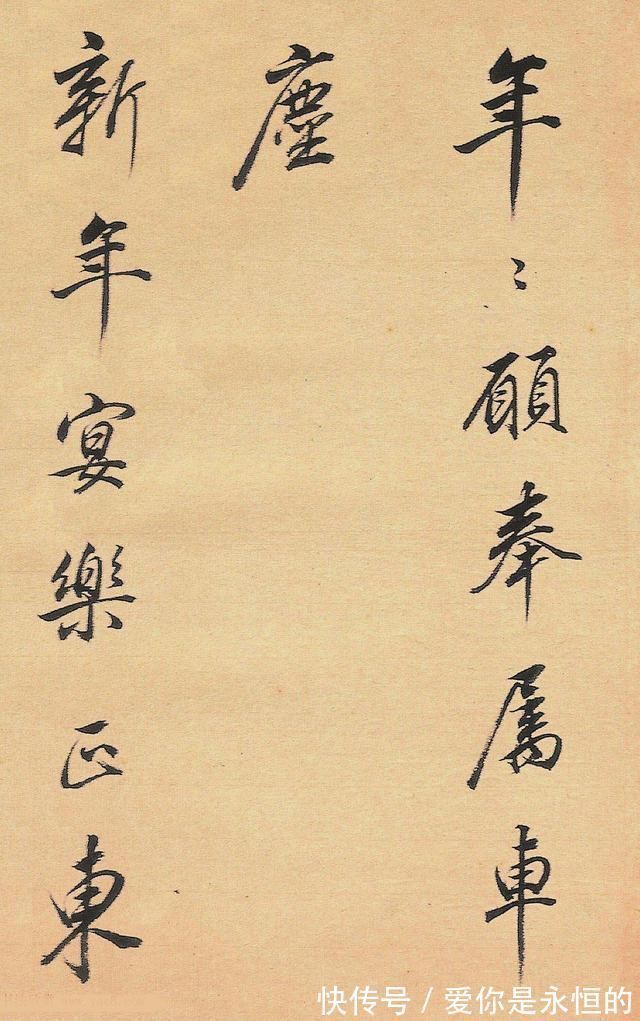 年〻願奉屬車
塵
新年宴樂正東
快传号/爱你是永恒的